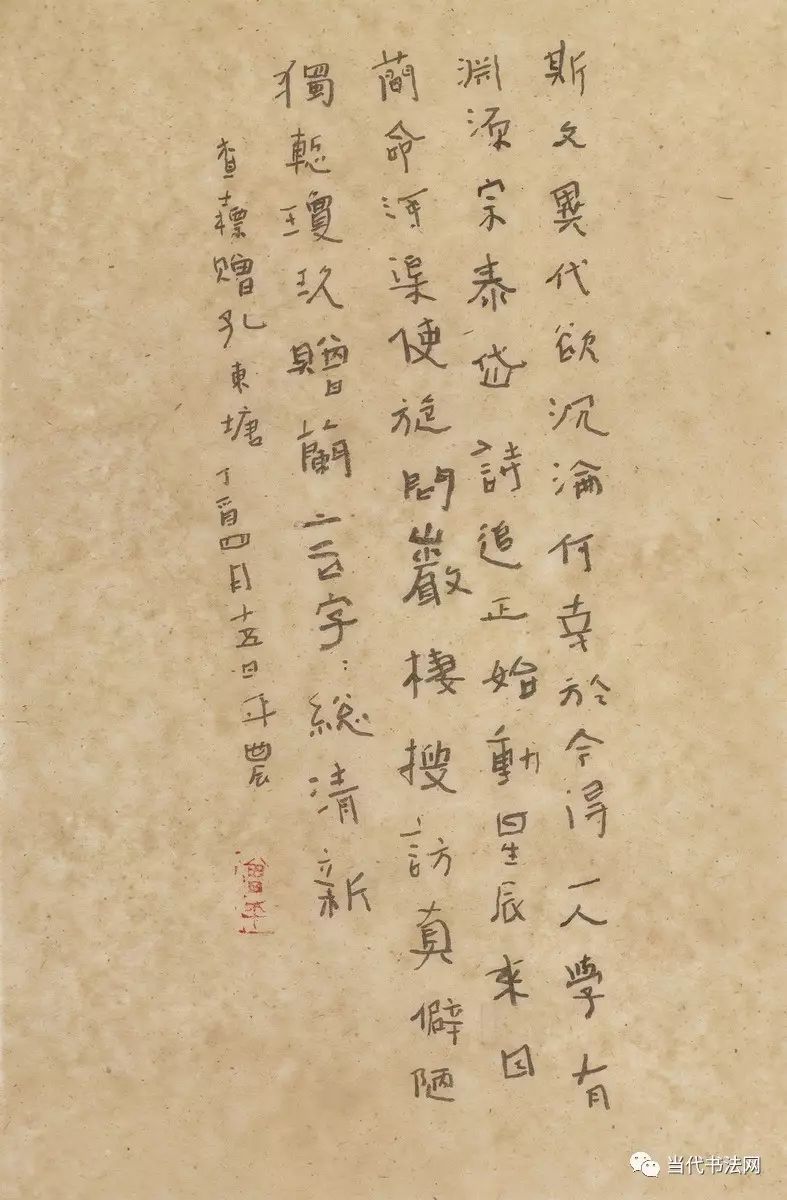 斯文異代欲沉淪何幸於今得一人學有
淵源宗泰岱詩追正始動星辰來因
簡命河渠使旋問巖棲搜訪真僻陋
獨慙瓊玖贈蘭言字:總清新
查士標贈孔東塘丁酉四月十五日農
当代书法网